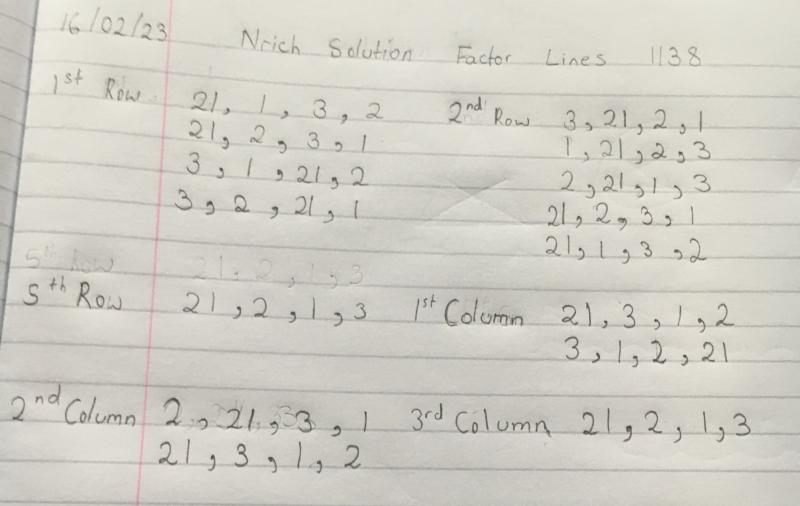 16/02/23 Nrich Solution Factor Lines 1138
1st Row 21, 1, 3, 2
21, 2, 3, 1
3, 1, 21, 2
3, 2, 21, 1
2nd Row 3, 21, 2, 1
1, 21, 2, 3
2, 21, 1, 3
21, 2, 3, 1
21, 1, 3, 2
5th Row 21, 2, 1, 3
5th Row 21, 2, 1, 3
1st Column 21, 3, 1, 2
3, 1, 2, 21
2nd Column 2, 21, 3, 1
21, 3, 1, 2
3rd Column 21, 2, 1, 3